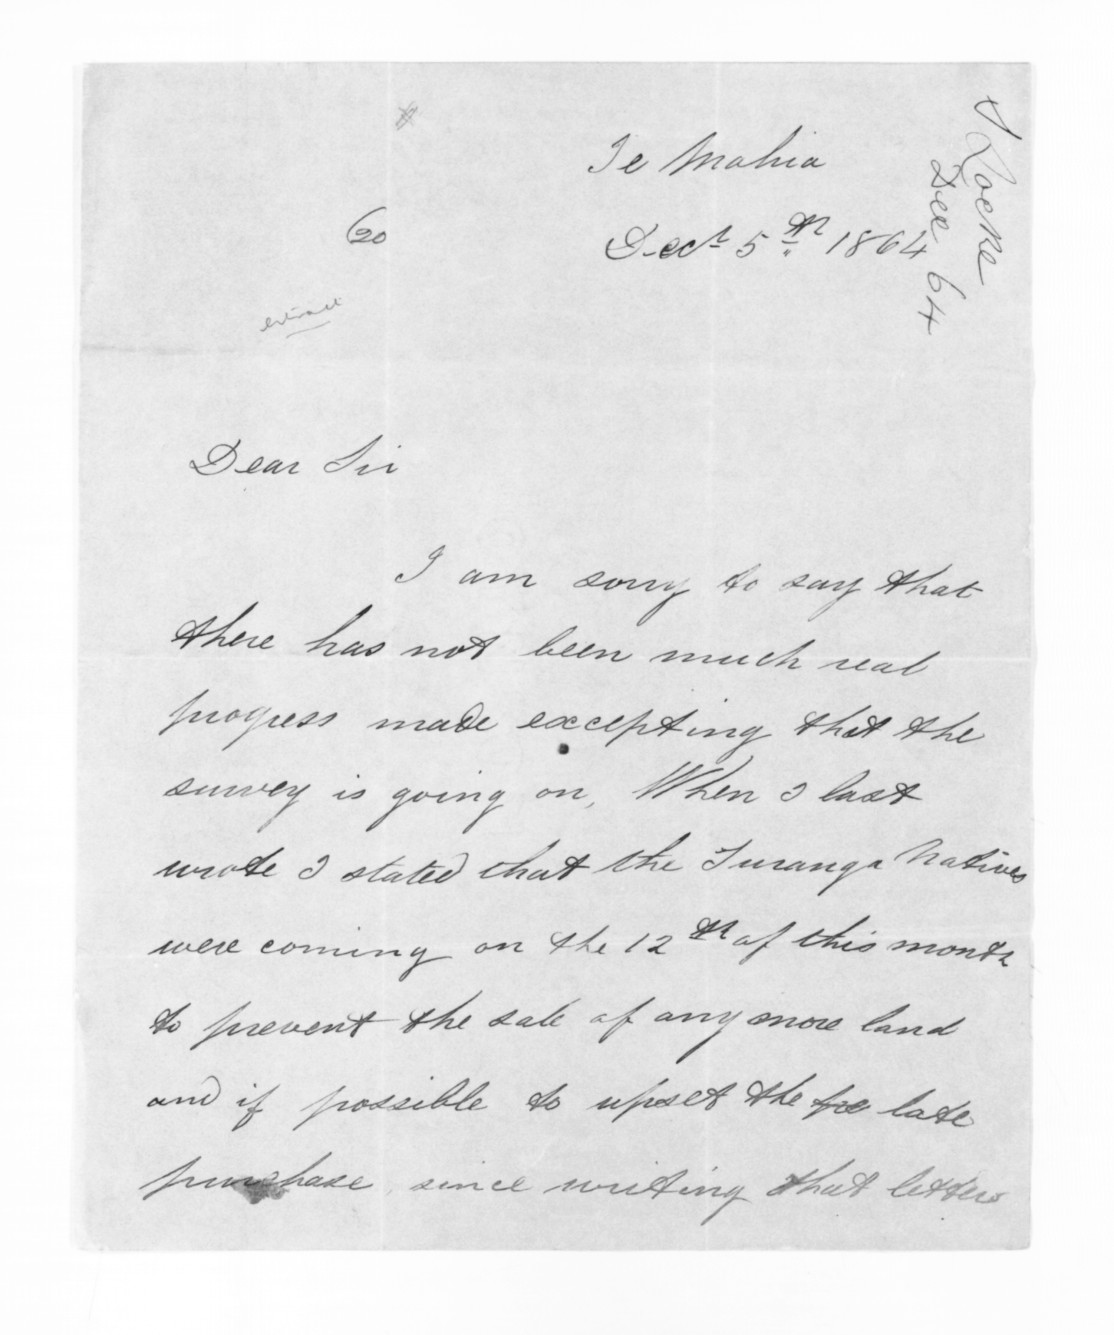 Te Mahia
S Locke
Dec 64
20
Decr 5th 1864
extract
Dear Sir
I am sorry to say that
there has not been much real
progress made excepting that the
survey is going on, When I last
wrote I stated that the Turanga Natives
were coming on the 12th of this month
to prevent the sale of any more land
and if possible to upset the late
purchase, since writing that letter